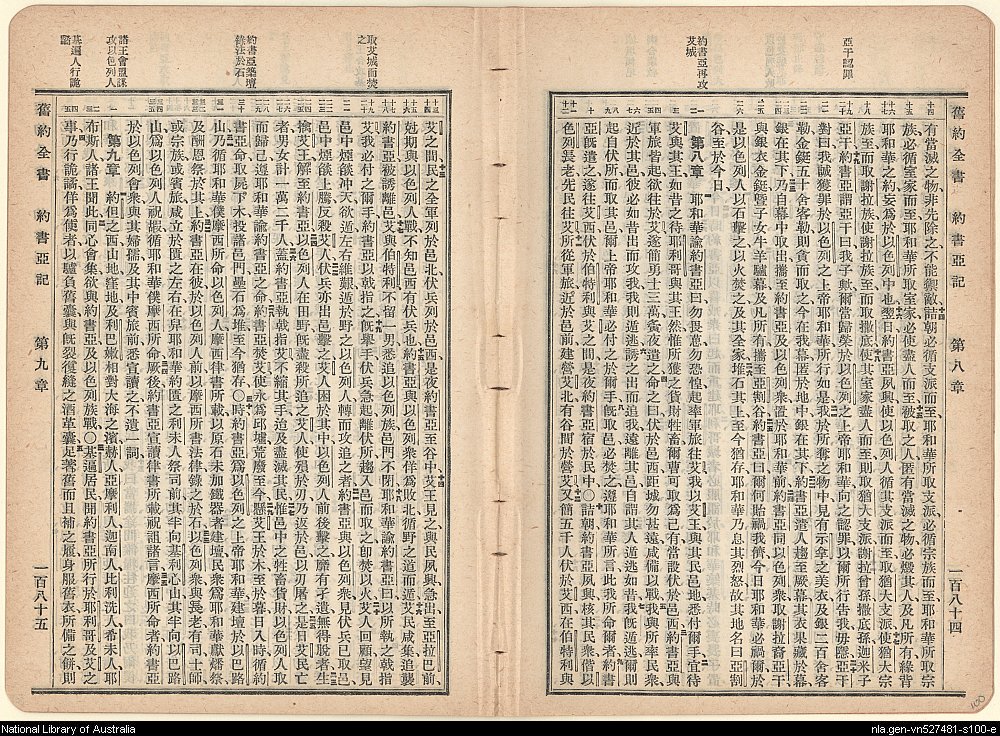 亞干認罪
約書亞再攻
艾城
舊約全書 約書亞記 第八章 一百八十四
有當滅之物非先除之不能禦敵詰朝必循支派而至耶和華所取支派必循宗族而至耶和華所取宗
族必循室家而至耶和華所取室家必使盡人而至被取之人匿有當滅之物必燬其人及凡所有緣背
耶和華之約妄爲於以色列中也翌日約書亞夙興使以色列人循其支派而至則取猶大支派使猶大宗
族至而取謝拉族使謝拉族至而取撒底使其室家盡人而至則取猶大支派謝拉曾孫撒底孫迦米子
亞干約書亞謂亞干曰我子歟爾當歸榮於以色列之上帝耶和華向之認罪以爾所行告我毋隱亞干
對曰我誠獲罪於以色列之上帝耶和華所行如是我於所奪之物中見有示拿之美衣及銀二百舍客
勒金鋌五十舍客勒則貪而取之今在我幕匿於地中銀在其下約書亞遣人趨至厥幕其衣果藏於幕
銀在其下乃自幕中取出攜至約書亞及以色列衆置於耶和華前約書亞同以色列衆取謝拉裔亞干
與銀衣金鋌暨子女牛羊驢幕及凡所有攜至亞割谷約書亞曰爾何貽禍我儕今日耶和華必禍爾於
是以色列人以石擊之以火焚之及其全家堆石其上至今猶存耶和華乃息其烈怒故其地名曰亞割
谷至於今日
第八章 耶和華諭約書亞曰勿畏葸勿恐惶起率軍旅往艾我以艾王與其民邑地悉付爾手宜待
艾與其王如昔之待耶利哥與其王然惟所獲之貨財牲畜爾曹可取爲己有當設伏於邑西約書亞與
軍旅皆起欲往於艾遂簡勇士三萬夤夜遣之命之曰伏於邑西距城勿甚遠咸備以戰我與所率民衆
近於邑其民彼必如昔出而攻我我則逃遁誘之出而追我遠離其邑自謂其人遁逃如昔我旣逃遁爾則
起自伏所而取其邑爾上帝耶和華必付之於爾手旣取邑必焚之遵耶和華所言此我所命爾者約書
亞旣遣之遂往艾西伏於伯特利與艾之間於是夜約書亞宿於民中〇詰朝約書亞夙興核其民衆偕以
色列長老先民往艾所從軍旅近於邑前建營艾北有谷間於營艾又簡五千人伏於艾西在伯特利與
取艾城而焚
之
約書亞築壇
錄法於石
諸王會盟謀
攻以色列人
基遍人行詭
譎
艾之間民之全軍列於邑北伏兵列於邑西是夜約書亞至谷中艾王見之與民夙興急出至亞拉巴前
尅期與以色列人戰不知邑西有伏兵也約書亞與以色列衆佯爲敗北循野之道而遁艾民咸集追襲
約書亞被誘離邑艾與伯特利不留一男悉追以色列族邑門不閉耶和華諭約書亞曰以所執之戟指
艾我必付之爾手約書亞以戟指之旣舉手伏兵急起離伏所趨入邑而取之卽焚以火艾人回顧望見
邑中煙燄冲天欲遁左右維艱遁於野之以色列人轉而攻追之者約書亞與以色列衆見伏兵已取邑
邑中煙燄上騰反殺艾人伏兵亦出邑擊之艾人困於其中以色列人前後擊之靡有孑遺無得脫者生
擒艾王解至約書亞以色列人在田野旣盡殺所追之艾人使殞於刃乃返於邑以刃屠之是日艾民亡
者男女計一萬二千人蓋約書亞執戟指艾不縮其手迨及盡滅其民惟邑中之牲畜貨財以色列人取
而歸己遵耶和華諭約書亞之命約書亞焚艾使永爲邱墟荒廢至今懸艾王於木至於暮日入時循約
書亞命取屍下木投諸邑門壘石爲堆至今猶存〇時約書亞爲以色列之上帝耶和華建壇於以巴路
山乃循耶和華僕摩西所命以色列人摩西律書所載以原石未加鐵器者建壇民衆爲耶和華獻燔祭
及酬恩祭於其上約書亞在彼於以色列人前以摩西所書法律錄之於石以色列衆與長老有司士師
或宗族或賓旅咸立於匱之左右在舁耶和華約匱之利未人祭司前其半向基利心山其半向以巴路
山爲以色列人祝嘏循耶和華僕摩西所命厥後約書亞宣讀律書所載祝詛諸言摩西所命者約書亞
於以色列會衆與其婦孺及其中賓旅前悉宣讀之不遺一詞
第九章 約但之西山地窪地及利巴嫩相對大海之濱赫人亞摩利人迦南人比利洗人希未人耶
布斯人諸王聞此同心會集欲與約書亞及以色列族戰〇基遍居民聞約書亞所行於耶利哥及艾之
事乃行詭譎佯爲使者以驢負舊囊與旣裂復縫之酒革囊足著舊而且補之履身服舊衣所備之餅則
舊約全書 約書亞記 第九章 一百八十五
National Library of Australia
nla.gen-vn527481-s100-e
100